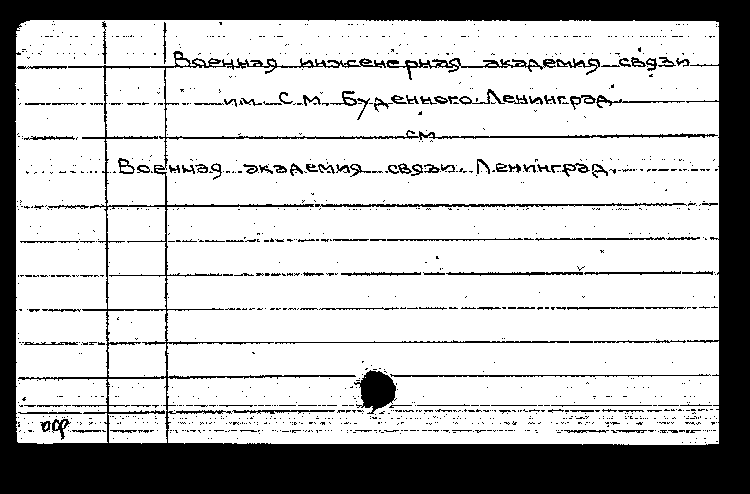 Военная инженерная академия связи
им. С.М. Буденного. Ленинград.
см
Военная академия связи. Ленинград.